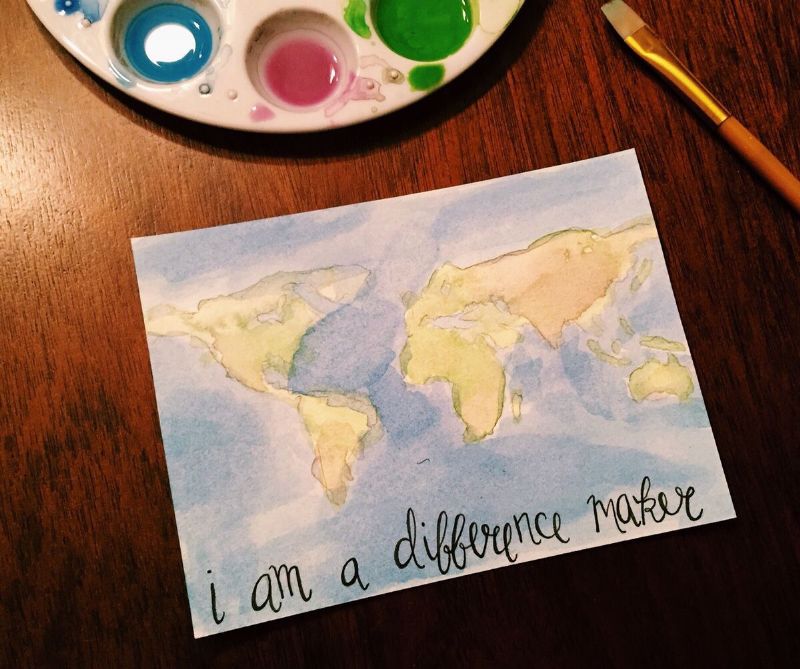 i am a difference maker